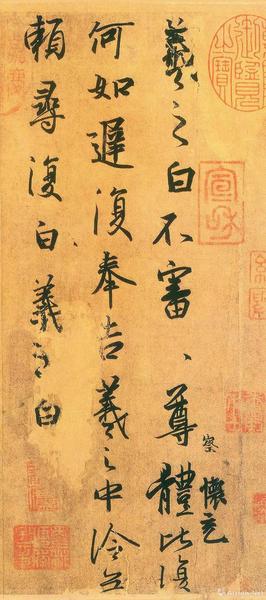 羲之白不審、尊體比復
察
懷充
何如遲復奉告羲之中冷無
賴尋復白、羲之白
宣和